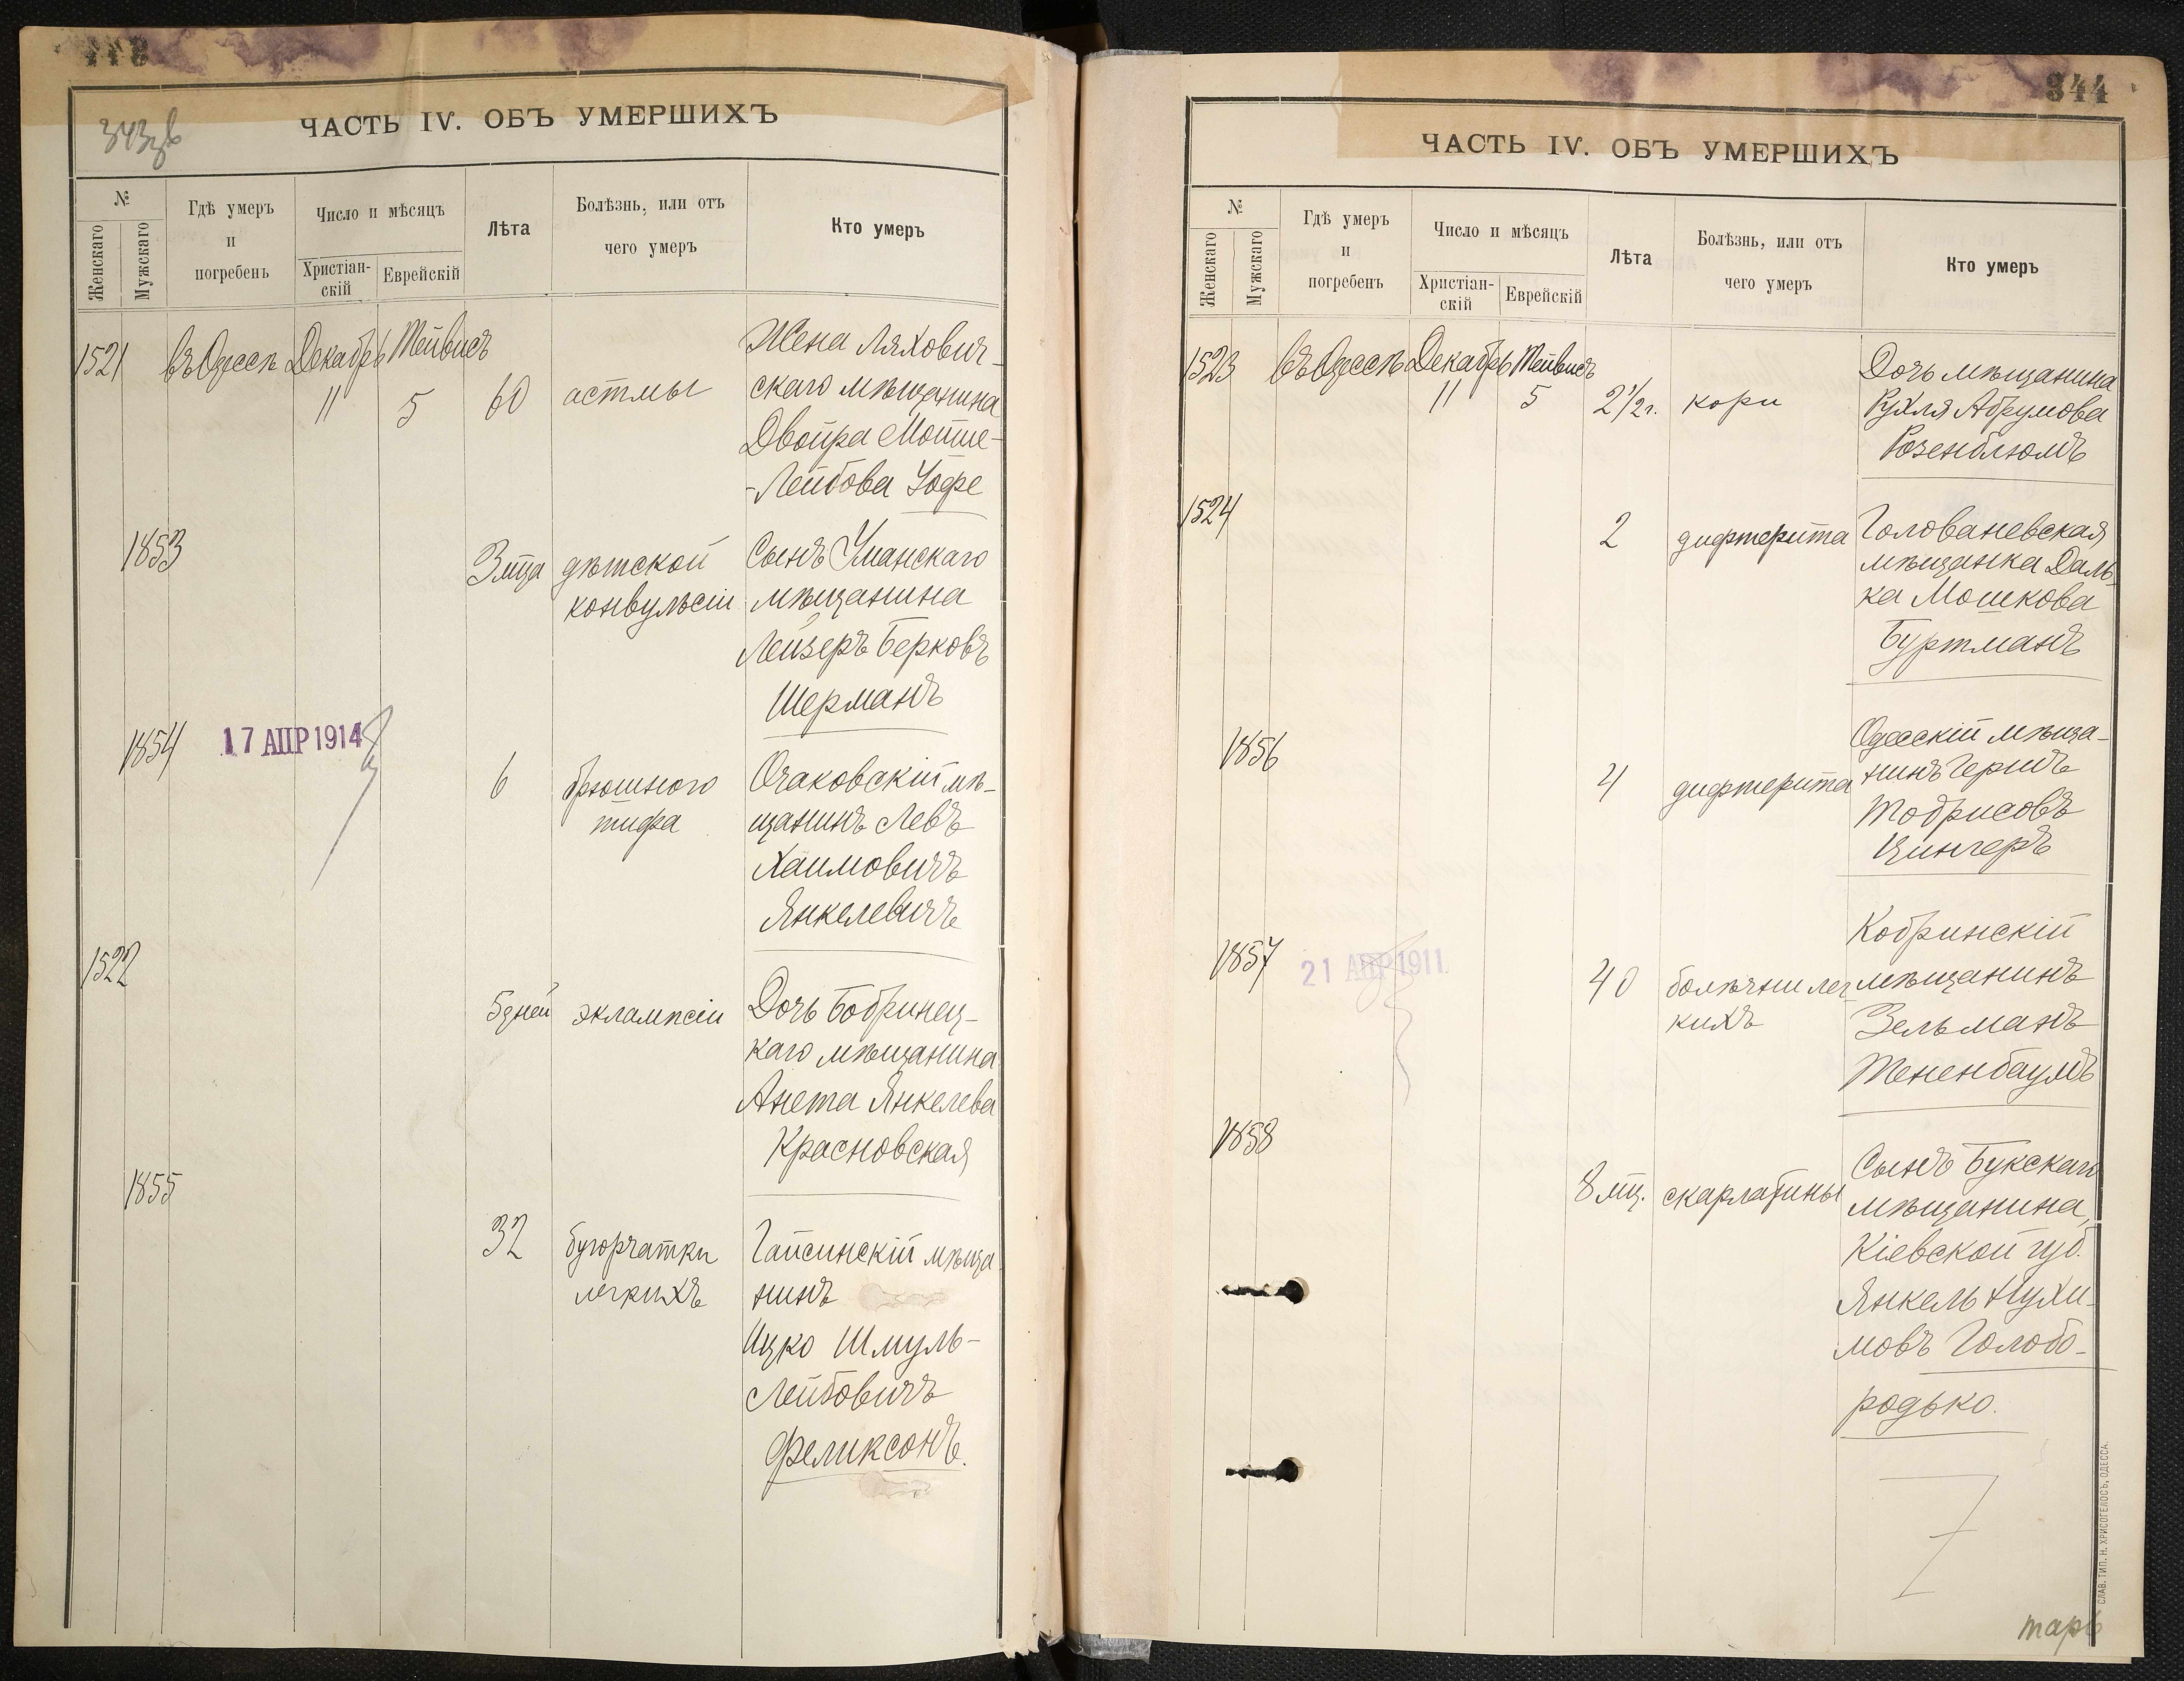 343зв
ЧАСТЬ IV. ОБЪ УМЕРШИХЪ
№
Женскаго
Мужскаго
Гдѣ умеръ
и
погребенъ
Число и мѣсяцъ
Христіан-
скій
Еврейскій
Лѣта
Болѣзнь, или отъ
чего умеръ
Кто умеръ
1521
въ Одессѣ
Декабрь
Тейвисъ
11
5
60
астмы
Жена Ляхович-
скаго мѣщанина
Двойра Мотше-
-Лейбова Іофе
1853
3 мца
дѣтской
конвульсіи
Сынъ Уманскаго
мѣщанина
Лейзеръ Берковъ
Шерманъ
1854
17 АПР 1914
6
брюшного
тифа
Очаковскій мѣ-
щанинъ Левъ
Хаимовичъ
Янкелевичъ
1522
5 дней
эклампсіи
Дочь Бобринец-
каго мѣщанина
Анета Янкелева
Красновская
1855
32
бугорчатки
легкихъ
Гайсинскій мѣща
нинъ
Ицко Шмуль-
Лейбовичъ
Феликсонъ.
344
ЧАСТЬ IV. ОБЪ УМЕРШИХЪ
№
Женскаго
Мужскаго
Гдѣ умеръ
и
погребенъ
Число и мѣсяцъ
Христіан-
скій
Еврейскій
Лѣта
Болѣзнь, или отъ
чего умеръ
Кто умеръ
1523
въ Одессѣ
Декабрь
Тейвисъ
11
5
2 1/2 г.
кори
Дочь мѣщанина
Рухля Абрумова
Розенблюмъ
1524
2
дифтерита
Голованевская
мѣщанка Даль-
ка Мошкова
Буртманъ
1856
4
дифтерита
Одесскій мѣща-
нинъ Гершъ
Тодрисовъ
Цингеръ
1857
21 АПР 1911
40
болѣзни лег
кихъ
Кобринскій
мѣщанинъ
Зельманъ
Тененбаумъ
1858
8 мц.
скарлатины
Сынъ Букскаго
мѣщанина,
Кіевской губ.
Янкель Нухи-
мовъ Голобо-
родько.
7
СЛАВ. ТИП. Н. ХРИСОГЕЛОСЪ, ОДЕССА.